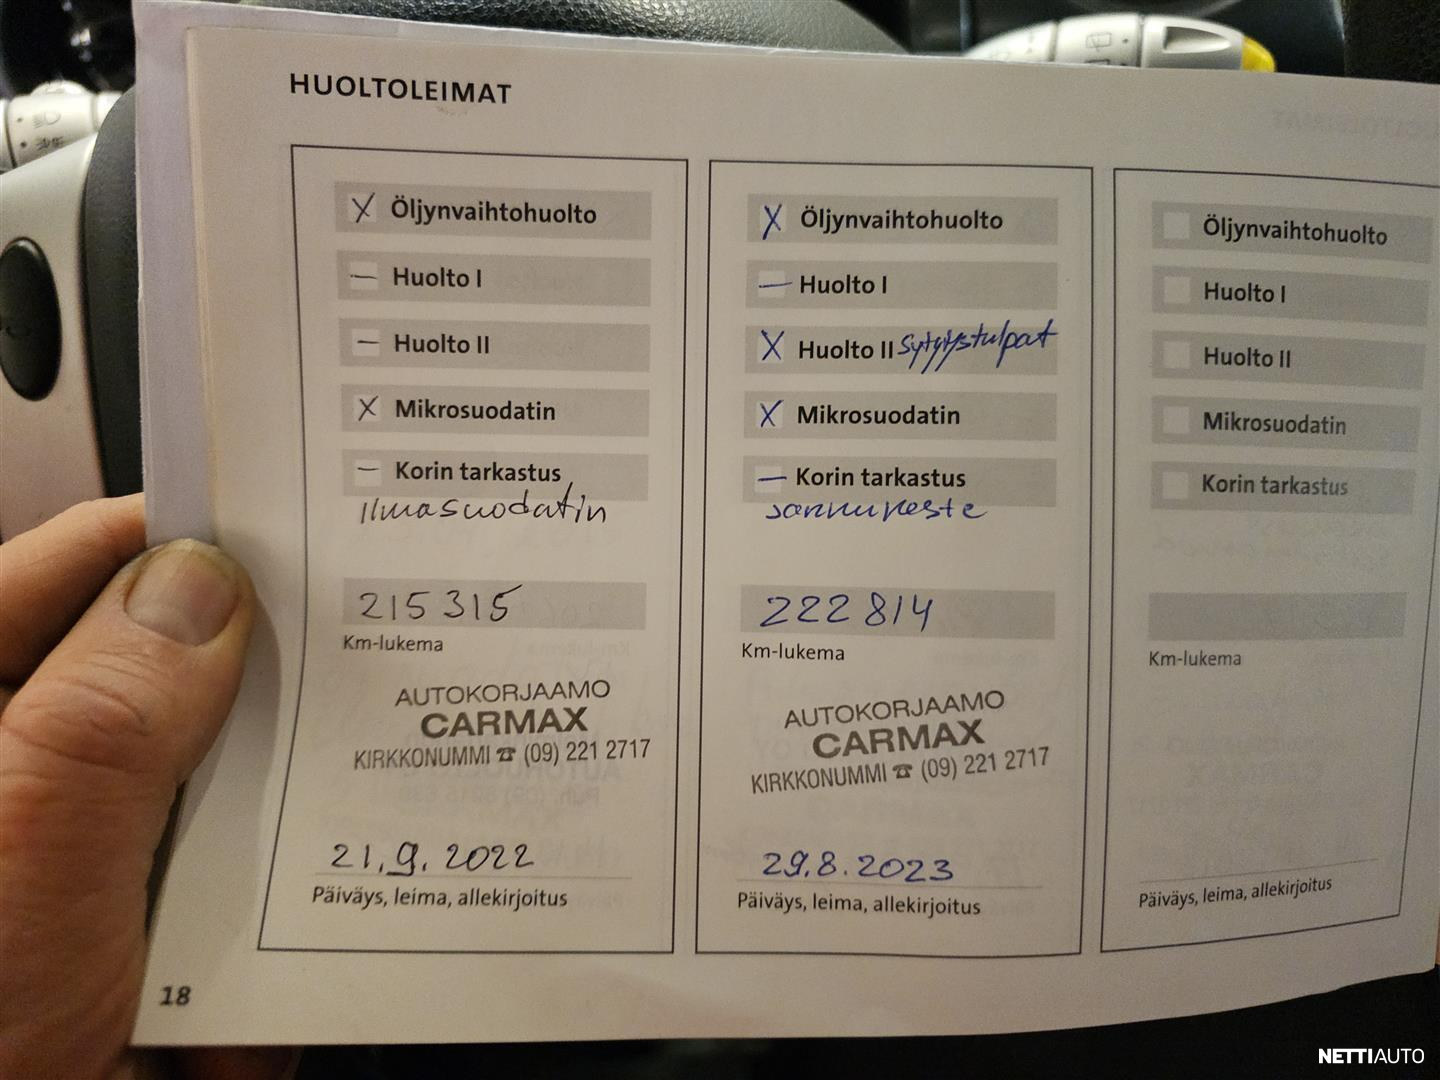 HUOLTOLEIMAT
X Öljynvaihtohuolto
— Huolto I
— Huolto II
X Mikrosuodatin
— Korin tarkastus
ilmasuodatin
215 315
Km-lukema
AUTOKORJAAMO
CARMAX
KIRKKONUMMI ☎ (09) 221 2717
21.9.2022
Päiväys, leima, allekirjoitus
X Öljynvaihtohuolto
— Huolto I
X Huolto II sytytystulpat
X Mikrosuodatin
— Korin tarkastus
Jarruneste
222 814
Km-lukema
AUTOKORJAAMO
CARMAX
KIRKKONUMMI ☎ (09) 221 2717
29.8.2023
Päiväys, leima, allekirjoitus
Öljynvaihtohuolto
Huolto I
Huolto II
Mikrosuodatin
Korin tarkastus
Km-lukema
Päiväys, leima, allekirjoitus
18
NETTIAUTO